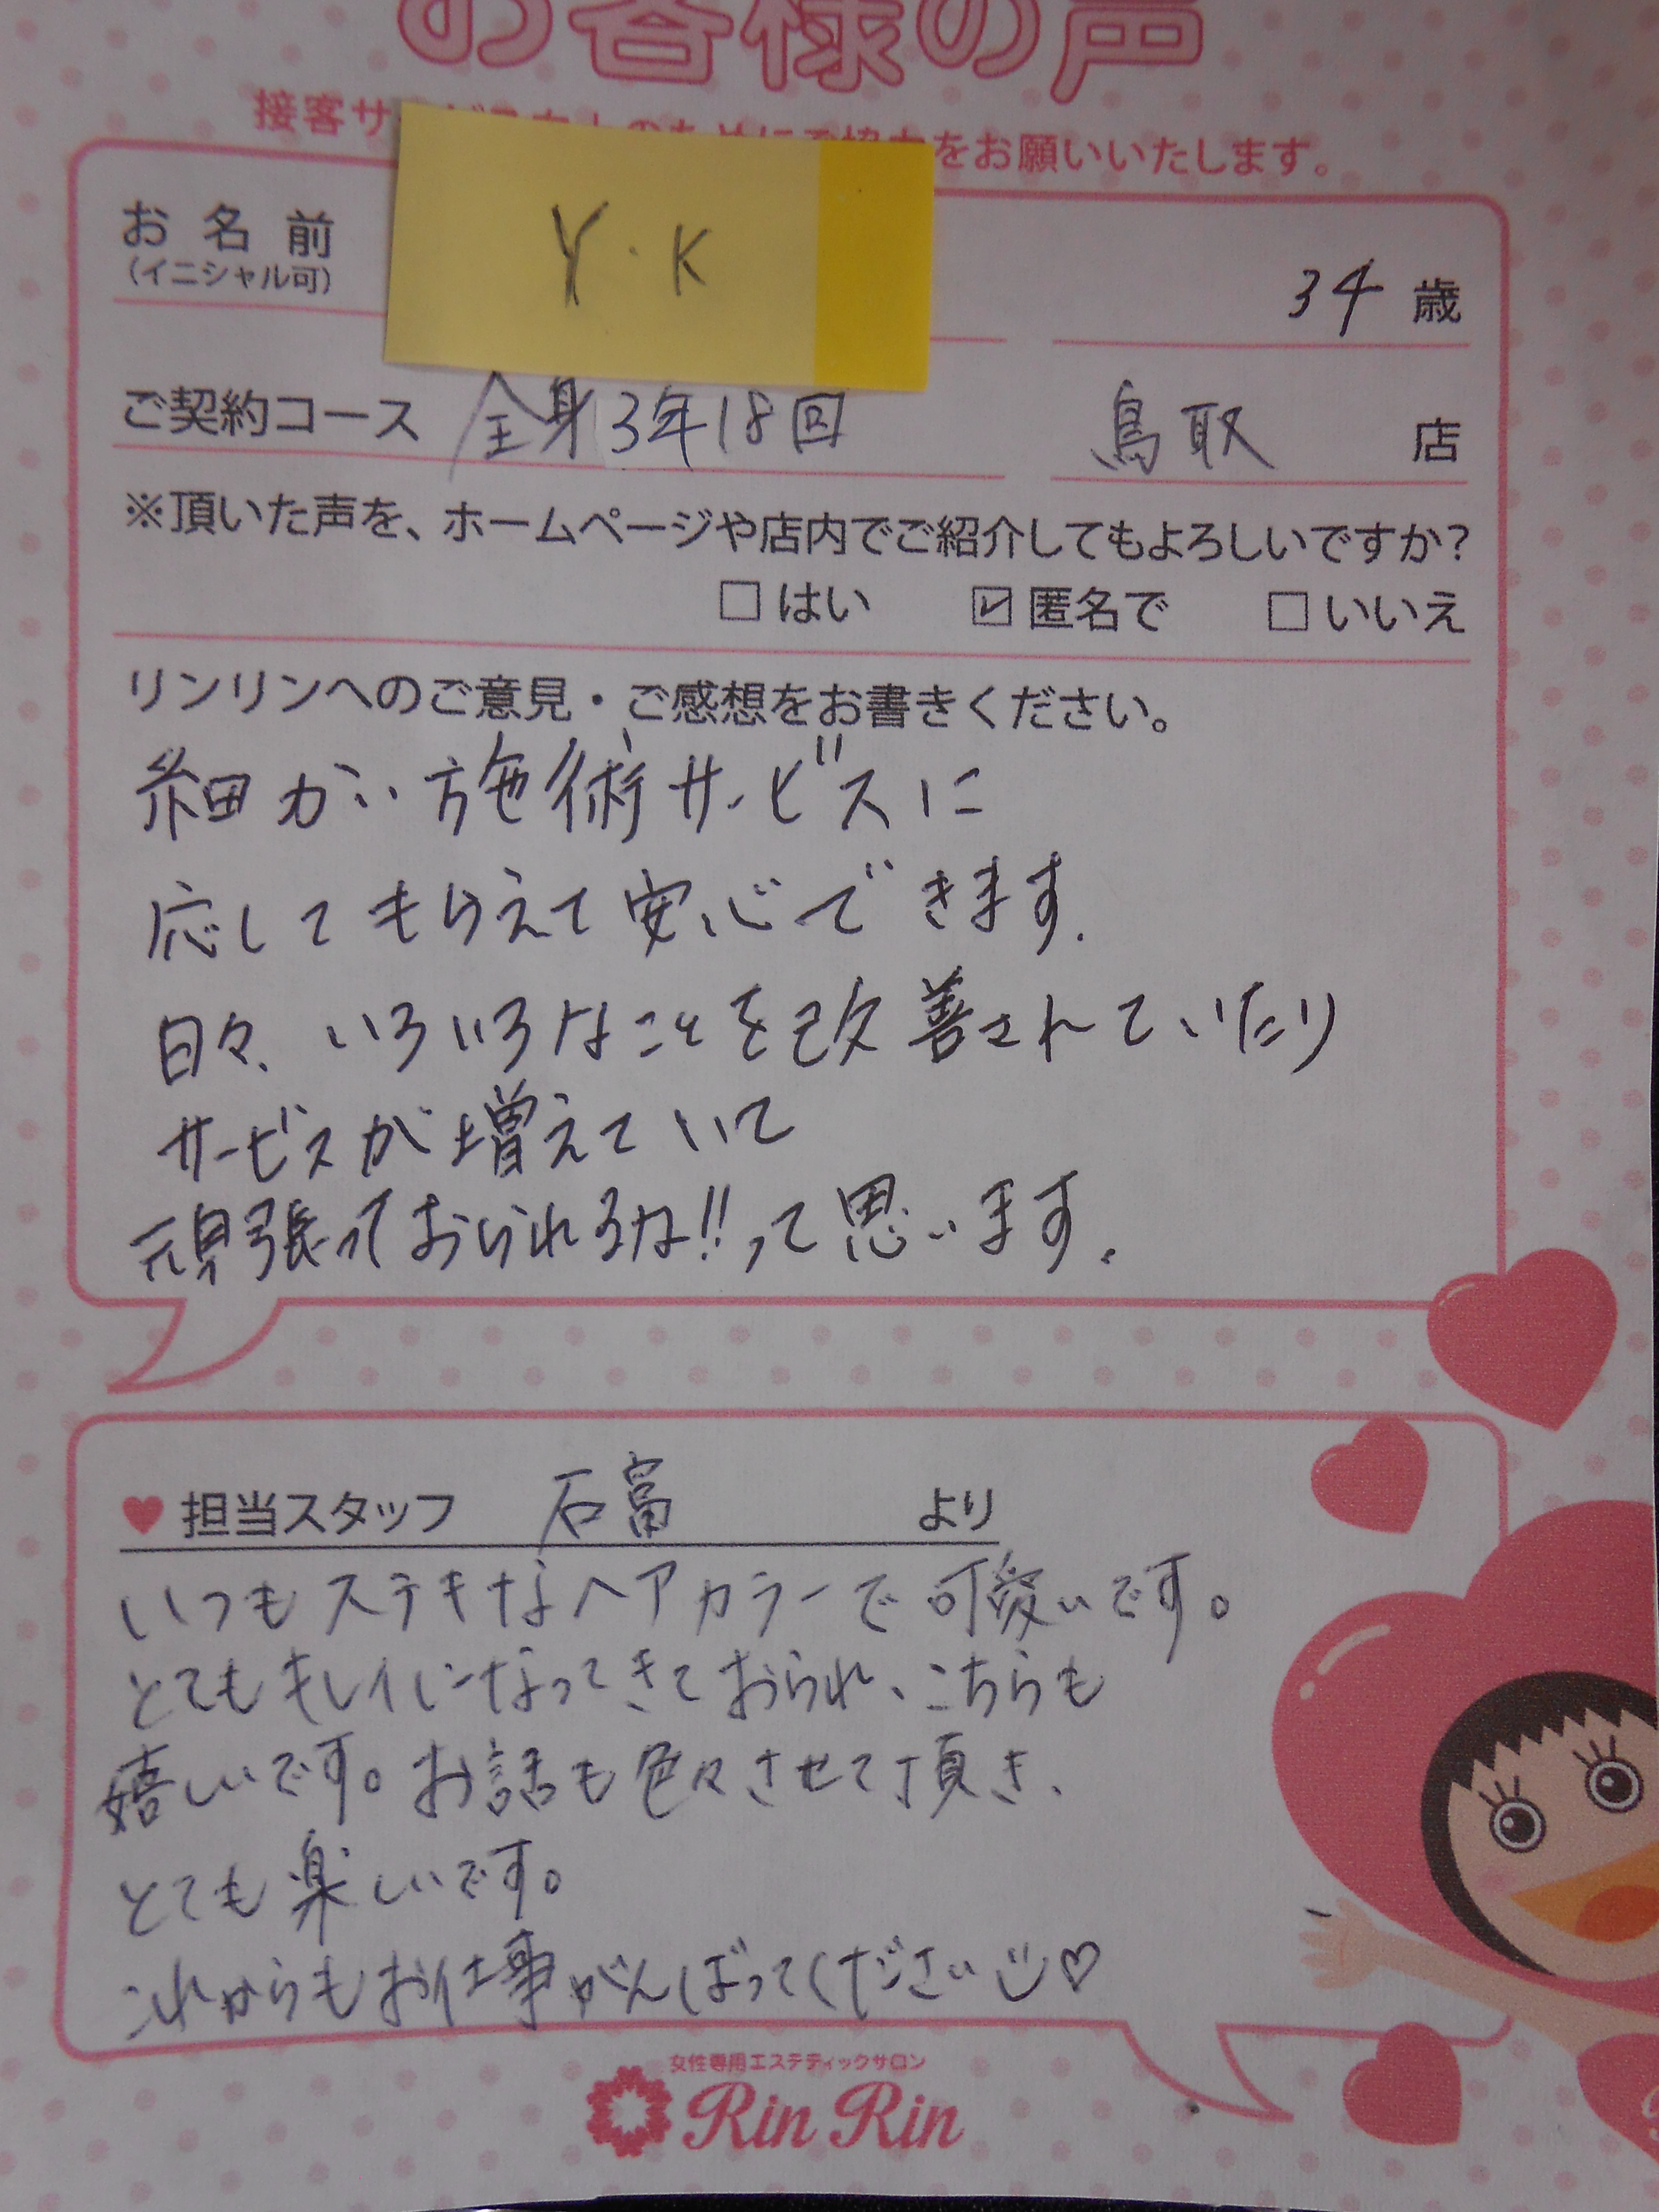 お客様の声
接客サービス向上のためにご協力をお願いいたします。
お名前
(イニシャル可)
Y・K
34 歳
ご契約コース 全身3年18回
鳥取 店
※頂いた声を、ホームページや店内でご紹介してもよろしいですか?
□はい ☑匿名で □いいえ
リンリンへのご意見・ご感想をお書きください。
細かい施術サービスに
応してもらえて安心できます.
日々、いろいろなことを改善されていたり
サービスが増えていて
頑張っておられるな!!って思います.
♥担当スタッフ 石富 より
いつもステキなヘアカラーで可愛いです。
とてもキレイになってきておられ、こちらも
嬉しいです。お話も色々させて頂き、
とても楽しいです。
これからもお仕事がんばってください♡
女性専用エステティックサロン
Rin Rin